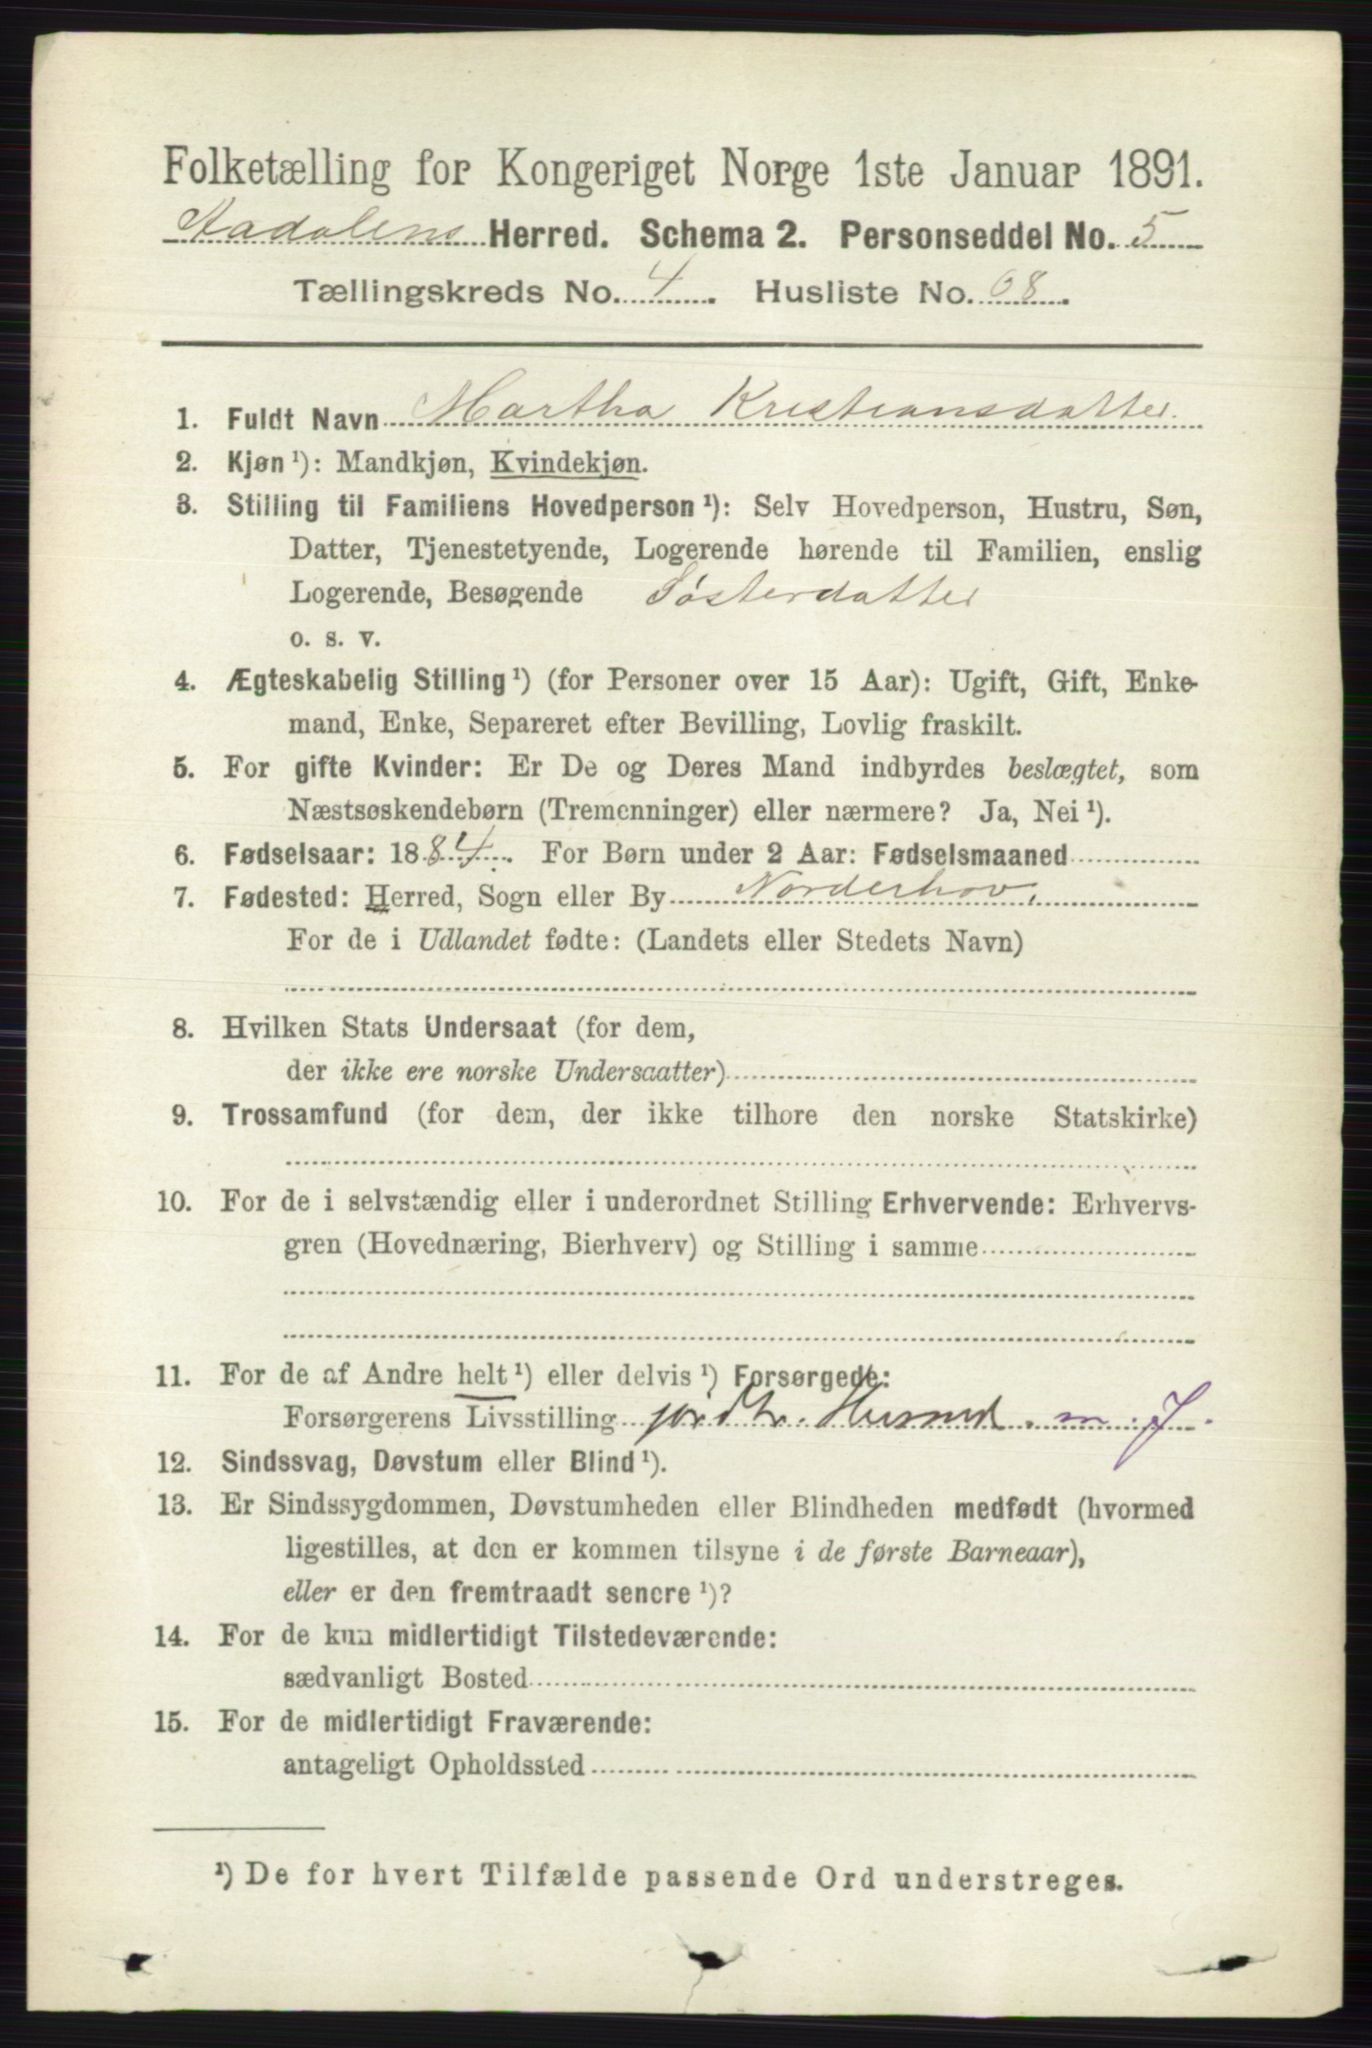 Folketælling for Kongeriget Norge 1ste Januar 1891.
Aadalens Herred. Schema 2. Personseddel No. 5
Tællingskreds No. 4. Husliste No. 68.
1. Fuldt Navn Martha Kristiansdatter.
2. Kjøn ¹): Mandkjøn, Kvindekjøn.
3. Stilling til Familiens Hovedperson ¹): Selv Hovedperson, Hustru, Søn,
Datter, Tjenestetyende, Logerende hørende til Familien, enslig
Logerende, Besøgende Søsterdatter
o. s. v.
4. Ægteskabelig Stilling ¹) (for Personer over 15 Aar): Ugift, Gift, Enke-
mand, Enke, Separeret efter Bevilling, Lovlig fraskilt.
5. For gifte Kvinder: Er De og Deres Mand indbyrdes beslægtet, som
Næstsøskendebørn (Tremenninger) eller nærmere? Ja, Nei ¹).
6. Fødselsaar: 1884. For Børn under 2 Aar: Fødselsmaaned
7. Fødested: Herred, Sogn eller By Norderhov.
For de i Udlandet fødte: (Landets eller Stedets Navn)
8. Hvilken Stats Undersaat (for dem,
der ikke ere norske Undersaatter)
9. Trossamfund (for dem, der ikke tilhøre den norske Statskirke)
10. For de i selvstændig eller i underordnet Stilling Erhvervende: Erhvervs-
gren (Hovednæring, Bierhverv) og Stilling i samme
11. For de af Andre helt ¹) eller delvis ¹) Forsørgede:
Forsørgerens Livsstilling jordbr. Husmd. m. J.
12. Sindssvag, Døvstum eller Blind ¹).
13. Er Sindssygdommen, Døvstumheden eller Blindheden medfødt (hvormed
ligestilles, at den er kommen tilsyne i de første Barneaar),
eller er den fremtraadt senere ¹)?
14. For de kun midlertidigt Tilstedeværende:
sædvanligt Bosted
15. For de midlertidigt Fraværende:
antageligt Opholdssted
¹) De for hvert Tilfælde passende Ord understreges.